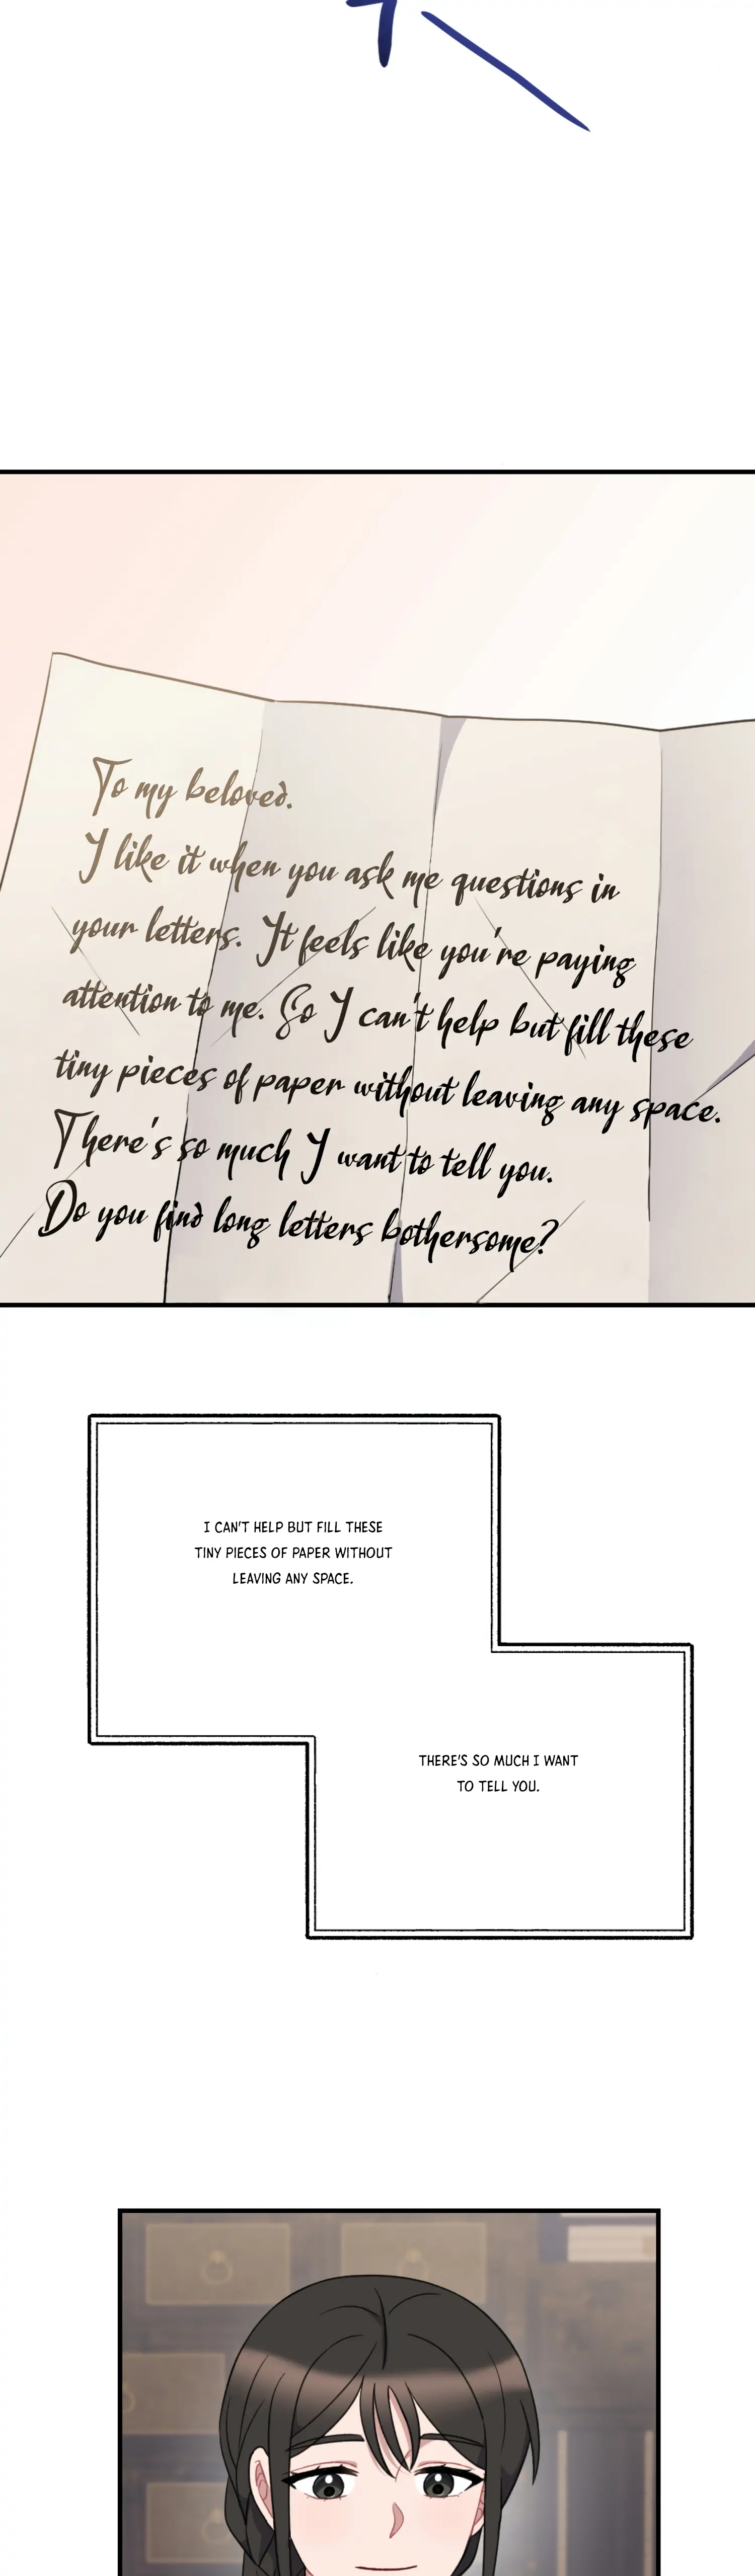 To my beloved.
I like it when you ask me questions in
your letters. It feels like you're paying
attention to me. So I can't help but fill these
tiny pieces of paper without leaving any space.
There's so much I want to tell you.
Do you find long letters bothersome?
I CAN'T HELP BUT FILL THESE
TINY PIECES OF PAPER WITHOUT
LEAVING ANY SPACE.
THERE'S SO MUCH I WANT
TO TELL YOU.